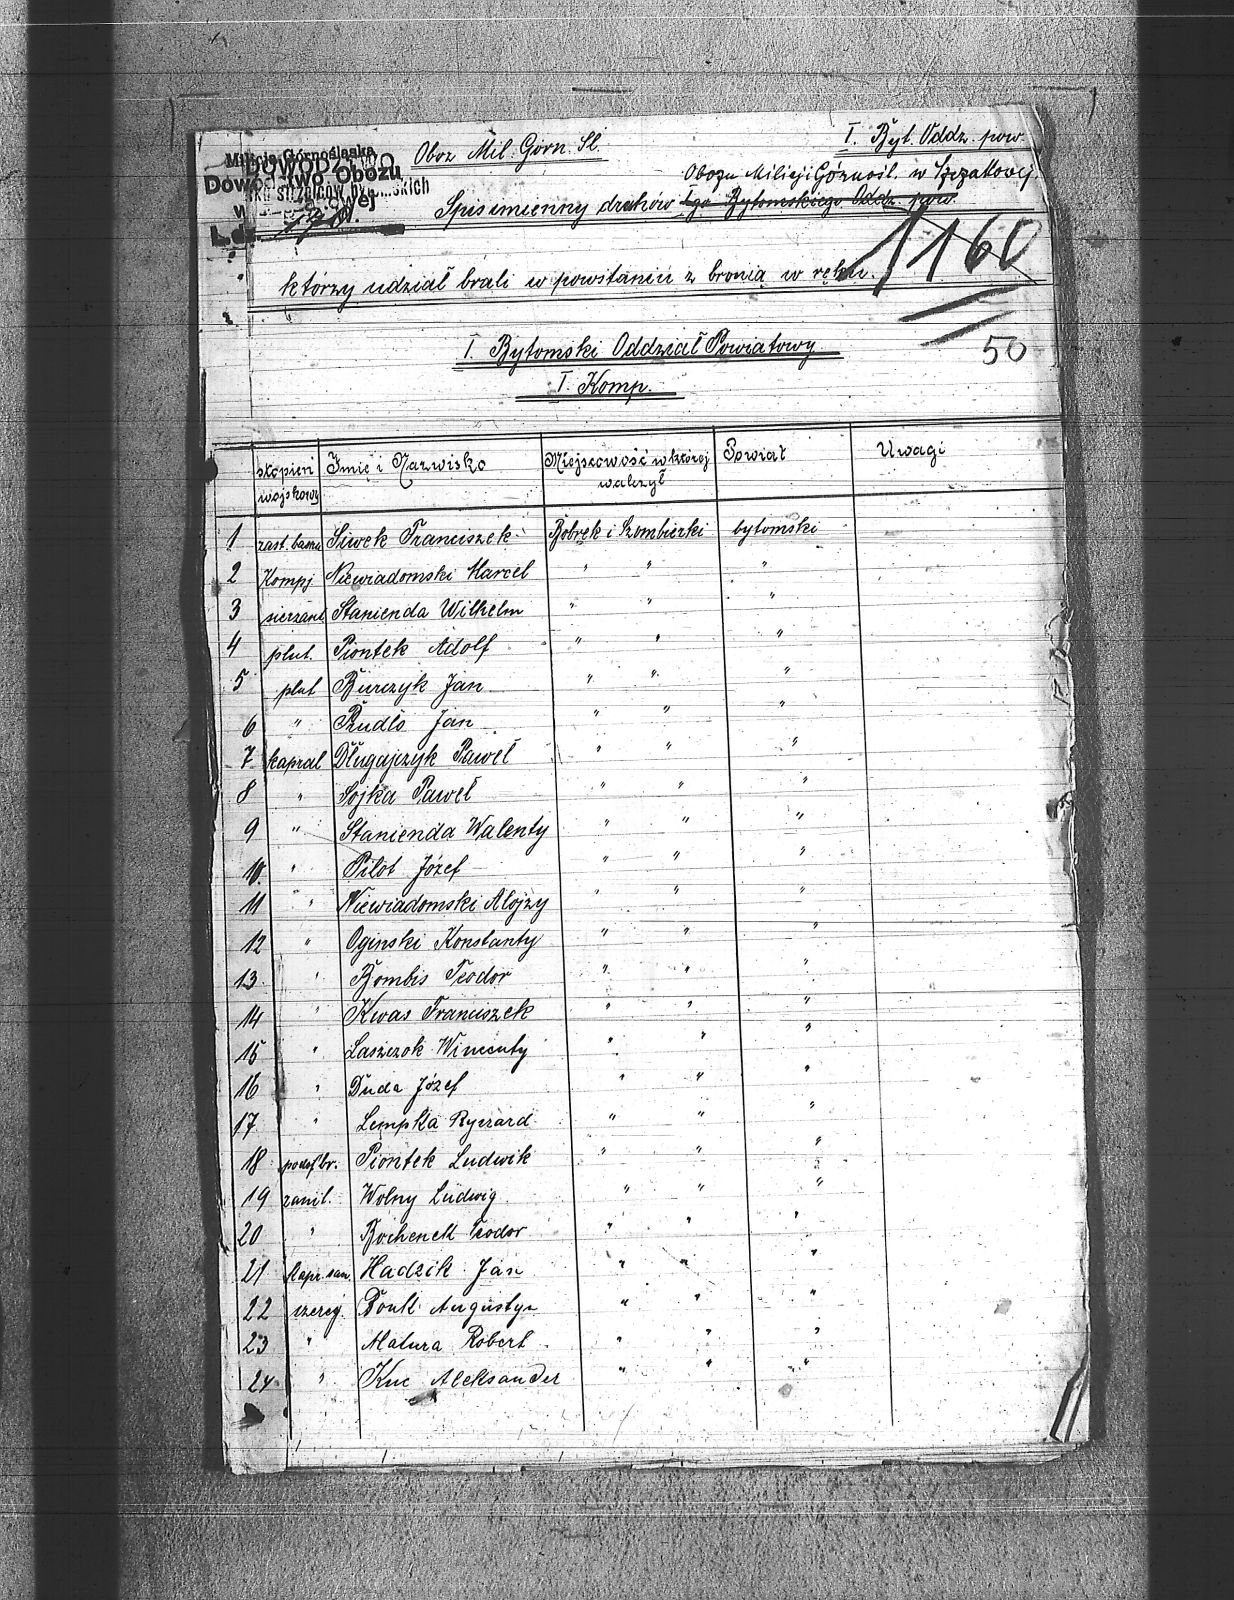 Milicja Górnośląska
Dowództwo Obozu
Obóz Mil. Górn. Sl.
I. Byt. Oddz. pow.
Obozu Milicji Górnośl. w
Spis imienny druhów Igo Bytomskiego Oddz. pow.
1160
którzy udział brali w powstaniu z bronią w ręku.
50
I. Bytomski Oddział Powiatowy
I. Komp.
stopień wojskowy Imię i Nazwisko Miejscowość w której walczył Powiat Uwagi
1 zast. Siwek Franciszek Bobrek i Szombierki bytomski
2 Niewiadomski Marcel " " "
3 sierżant Stanienda Wilhelm " " "
4 plut. Piontek Adolf " " "
5 plut Burczyk Jan " " "
6 " Pudlo Jan " " "
7 kapral Długajczyk Paweł " " "
8 " Sojka Paweł " " "
9 " Stanienda Walenty " " "
10. " Pilot Józef " " "
11 " Niewiadomski Alojzy " " "
12 " Oginski Konstanty " " "
13 " Bombis Teodor " " "
14 " Kwas Franciszek " " "
15 " Laszczok Wincenty " " "
16 " Duda Józef " " "
17 " Lempka Ryszard " " "
18 podof. br. Piontek Ludwik " " "
19 sanit. Wolny Ludwig " " "
20 " Bochenek Teodor " " "
21 kapr. san Hadzik Jan " " "
22 szereg. Bonk Augustyn " " "
23 " Matura Robert " " "
24 " Kuc Aleksander " " "